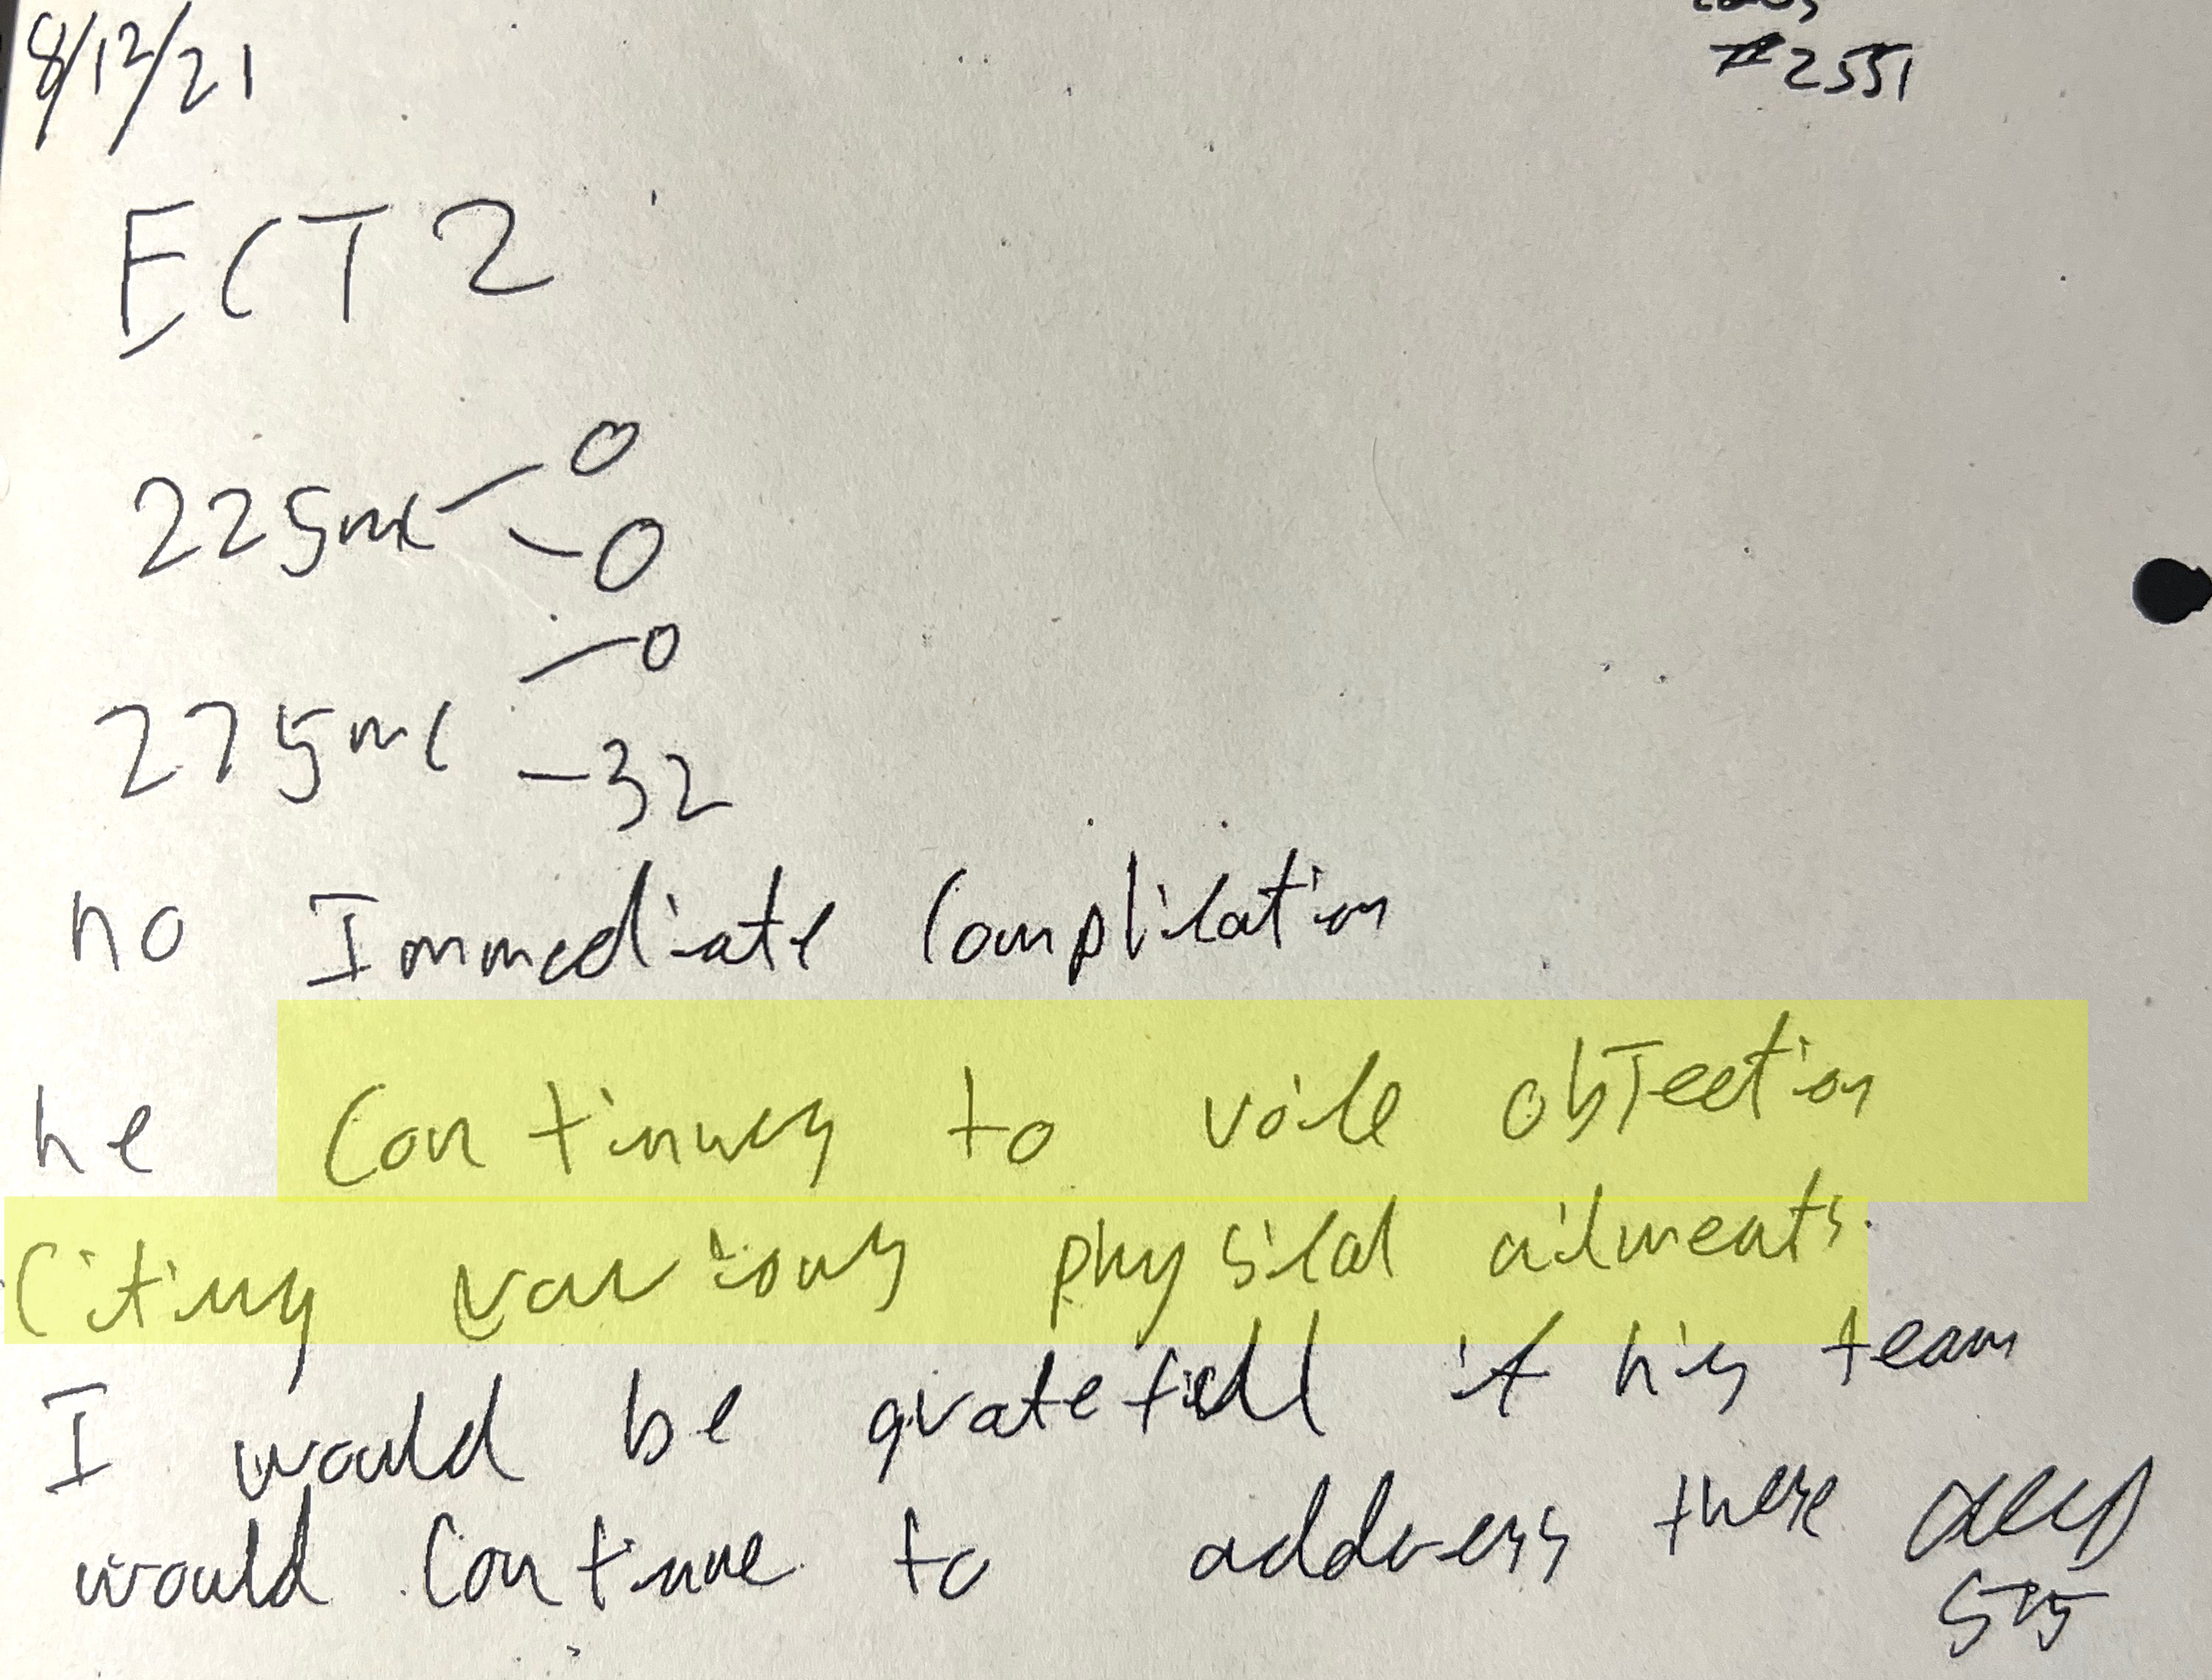 8/12/21
#2551
ECT 2
225mc - 0
- 0
275mc - 0
- 32
no Immediate Complication
he Continues to voice objection
Citing various physical ailments.
I would be gratefull if his team
would Continue to address these